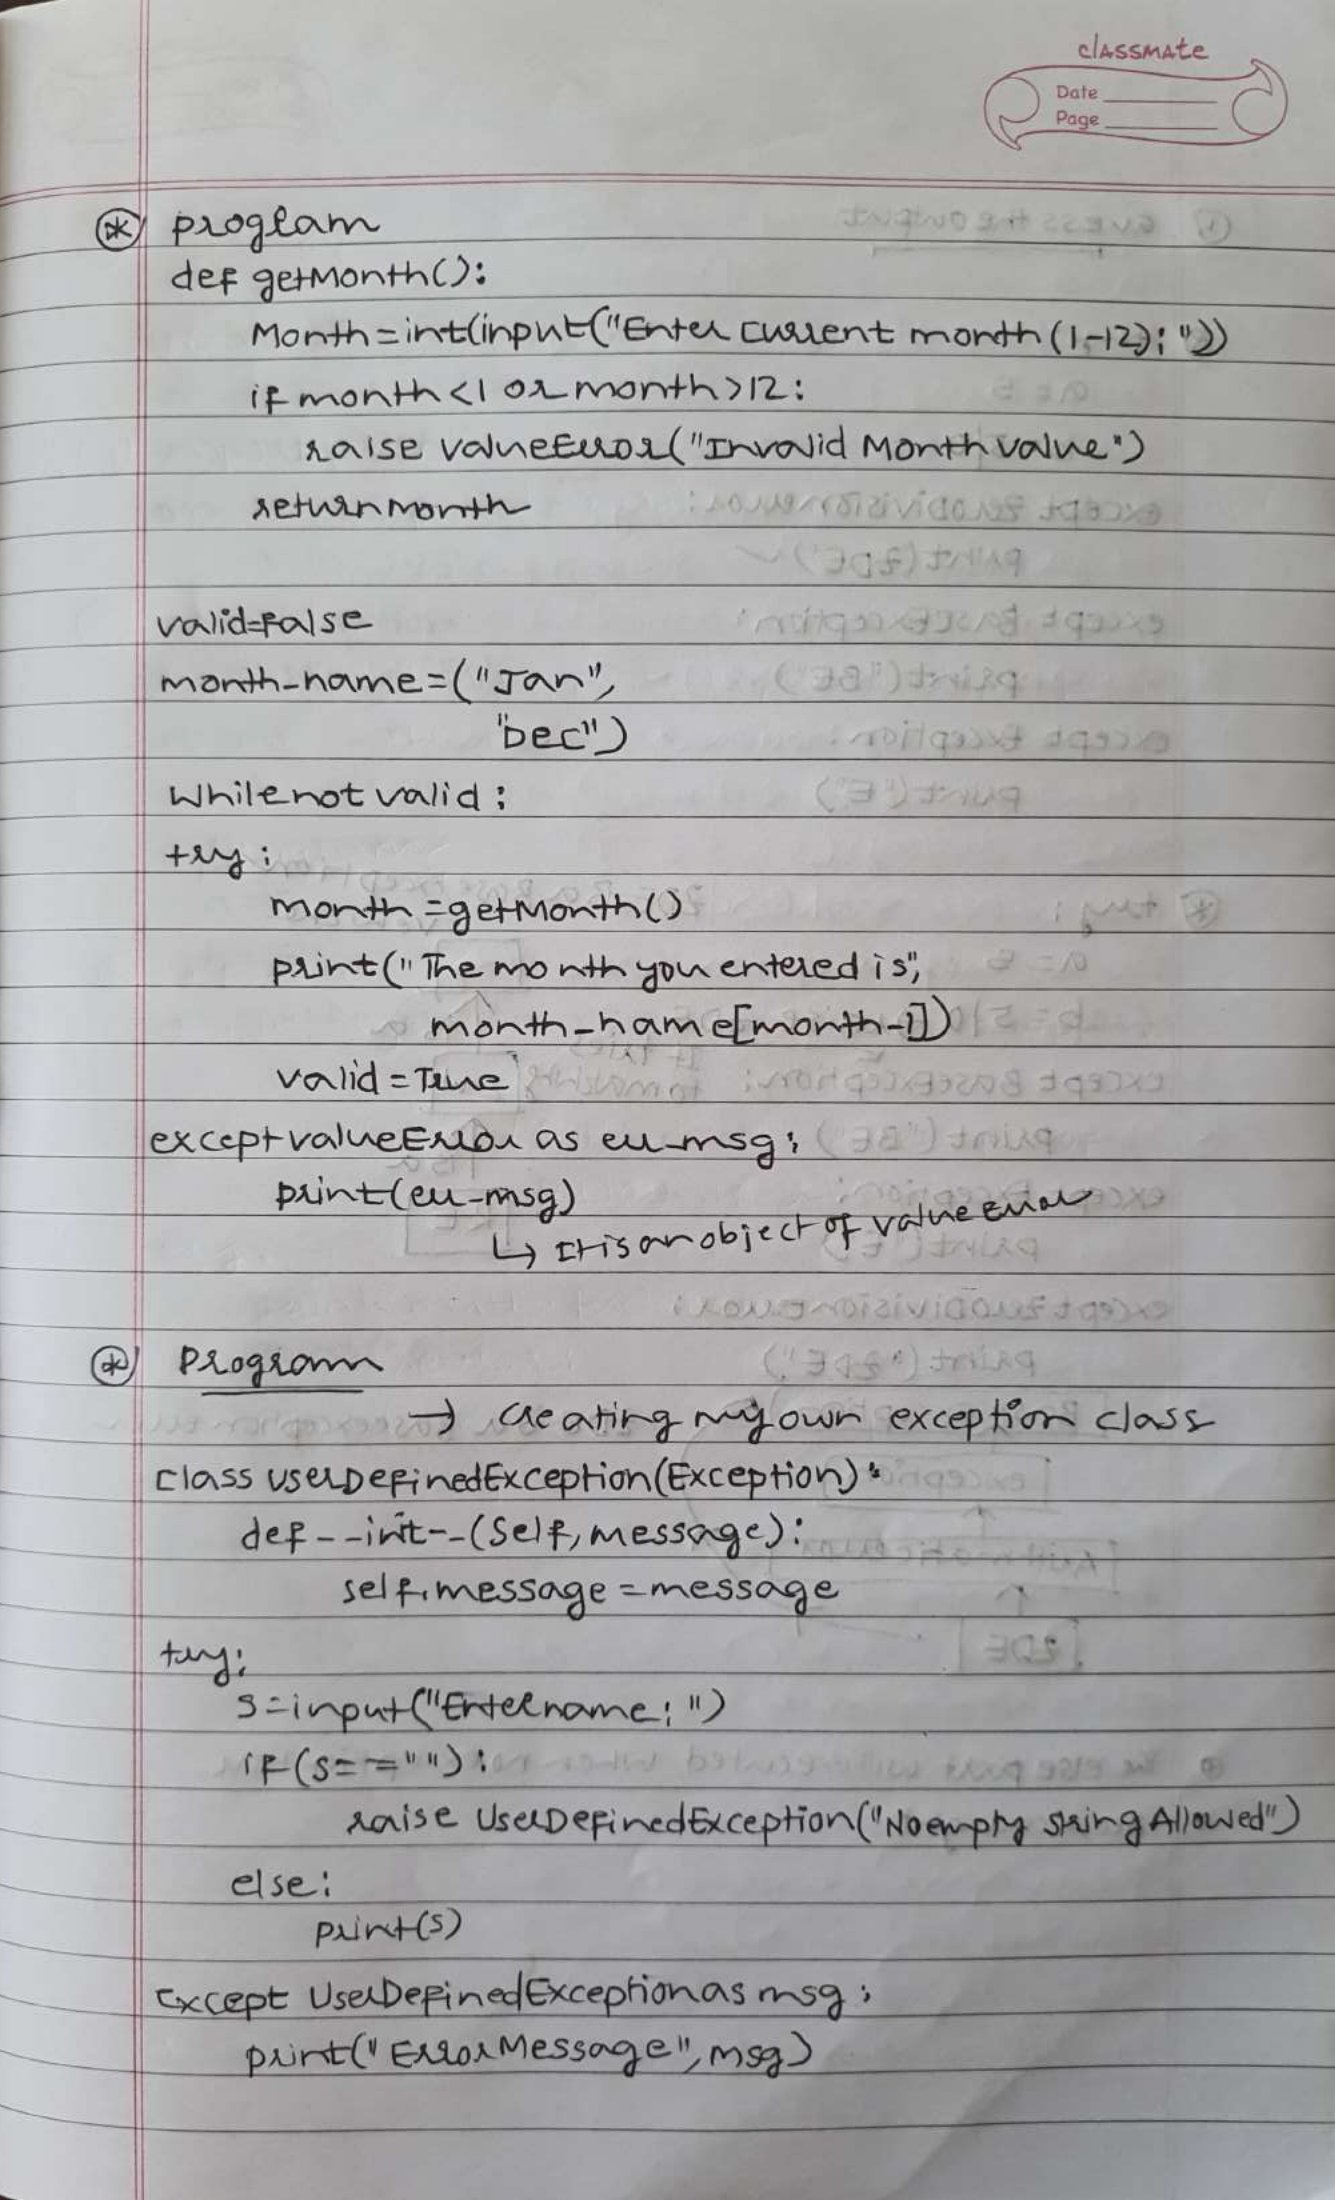 classmate
Date
Page
* program
def getMonth():
Month=int(input("Enter current month (1-12): "))
if month <1 or month >12:
raise valueError("Invalid Month value")
return month
valid=False
month_name=("Jan",
"Dec")
While not valid:
try:
month =getMonth()
print("The month you entered is",
month_name[month-1])
valid=True
except valueError as err_msg:
print(err_msg)
↳ It is an object of value Error
* Program
→ creating my own exception class
class userDefinedException(Exception):
def __init__(self, message):
self.message = message
try:
s=input("Enter name: ")
if (s==""):
raise UserDefinedException("No empty string Allowed")
else:
print(s)
Except UserDefinedException as msg:
print("ErrorMessage", msg)